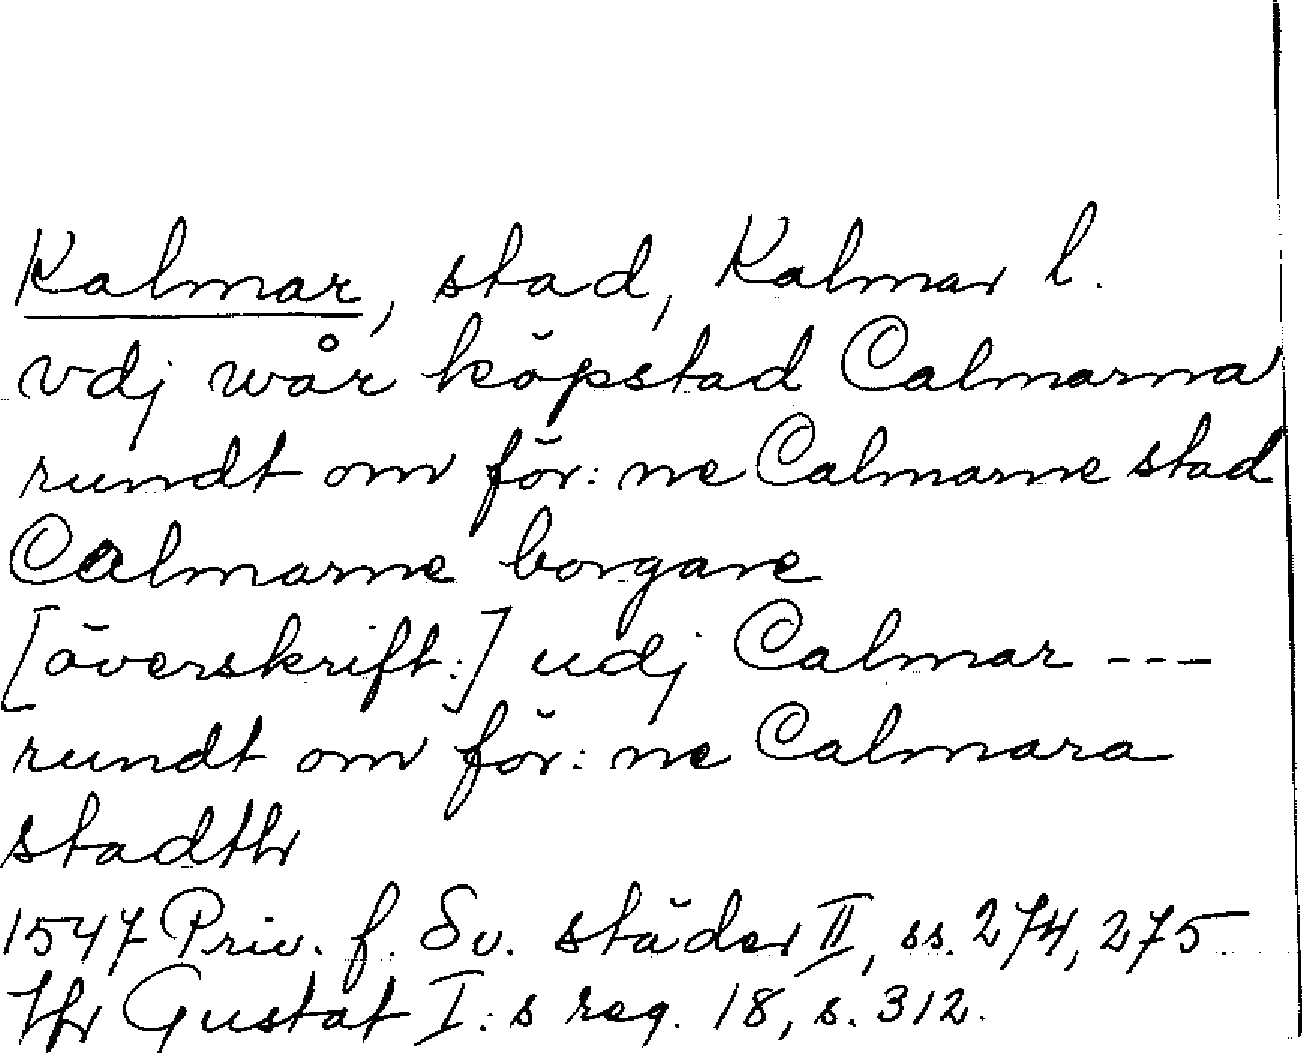 Kalmar, stad, Kalmar l.
vdj wår köpstad Calmarna
rundt om för: ne Calmarne stad
Calmarne borgare
[överskrift:] udj Calmar ---
rundt om för: ne Calmara
stadth
1547 Priv. f. Sv. städer II, ss. 274, 275
Gustaf I:s reg. 18, s. 312.